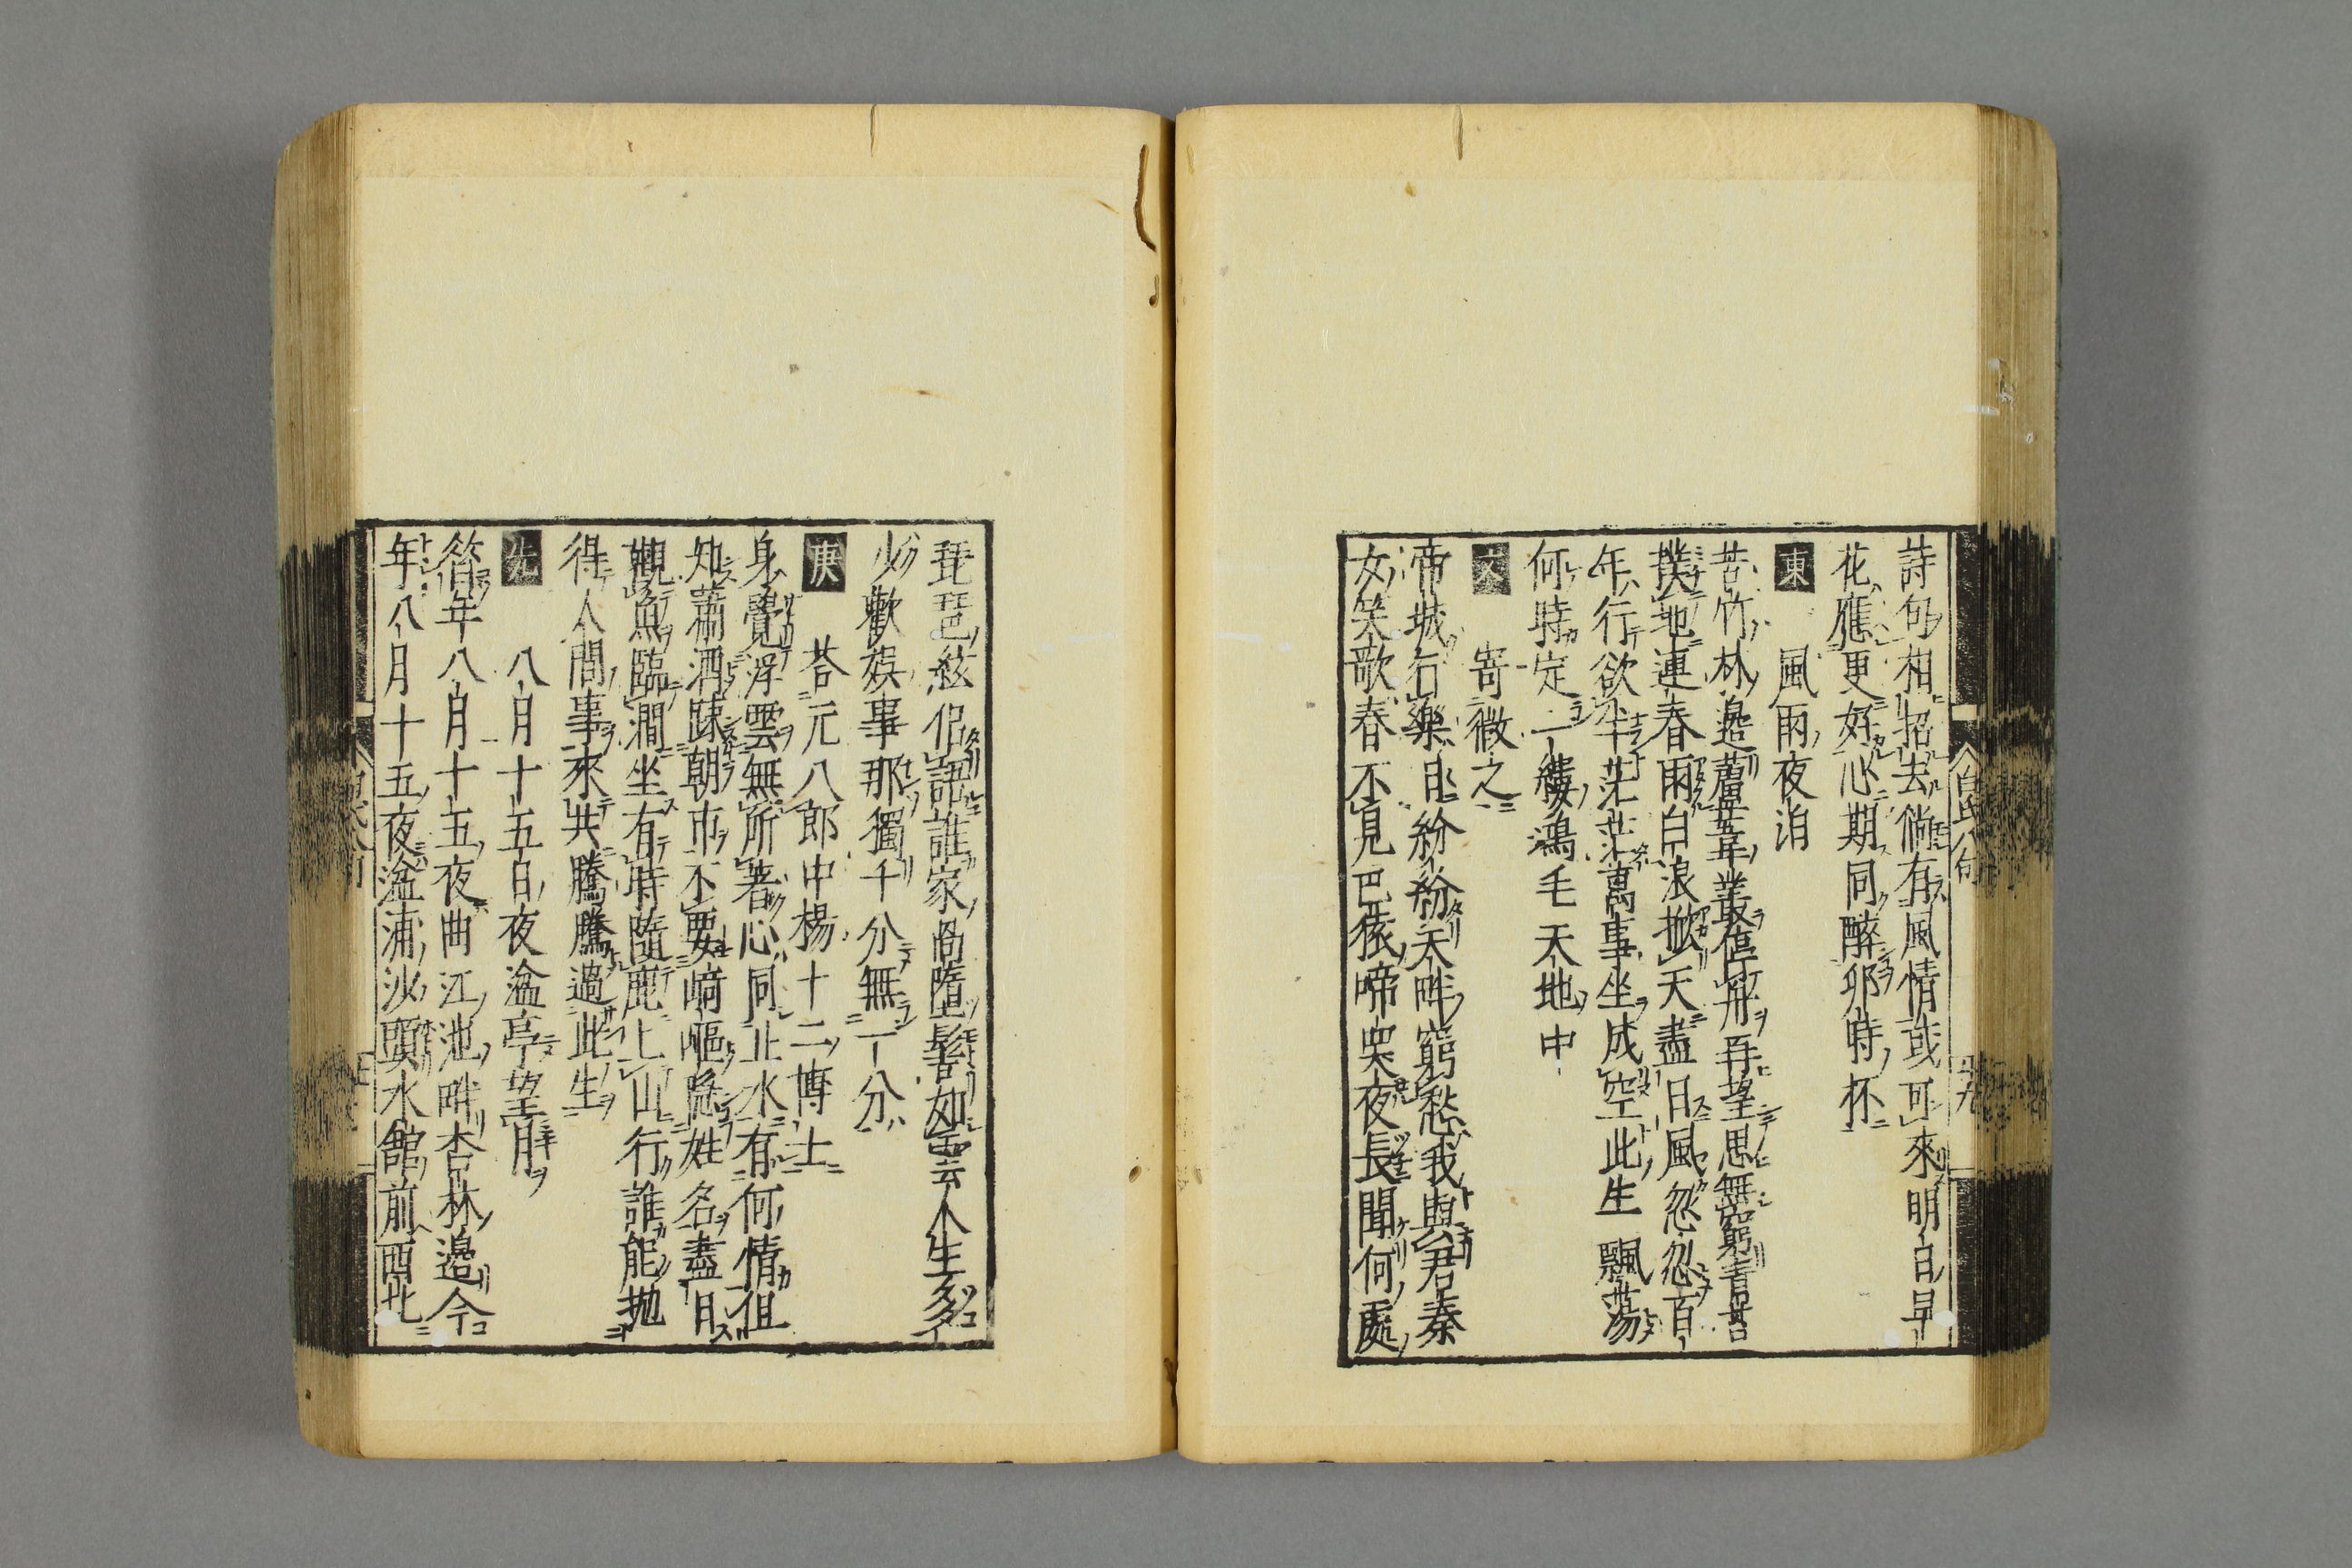 詩句相招去倘有風情或可來明日早
花應更好心期同醉卯時杯
東
風雨夜泊
苦竹林邊蘆葦叢停舟再望思無窮青苔
撲地連春雨白浪掀天盡日風忽忽百
年行欲半茫茫萬事坐成空此生飄蕩
何時定一縷鴻毛天地中
文
寄微之
帝城行樂日紛紛天畔窮愁我與君秦
女笑歌春不見巴猿啼哭夜長聞何處
琵琶絃似語誰家咼墮髻如雲人生多
少歡娛事那獨千分無一分
庚
荅元八郎中楊十二博士
身覺浮雲無所著心同止水有何情但
知蕭洒踈朝市不要崎嶇隱姓名盡日
觀魚臨澗坐有時隨鹿上山行誰能拋
得人間事來共騰騰過此生
先
八月十五日夜湓亭望月
昔年八月十五夜曲江池畔杏林邊今
年八月十五夜湓浦沙頭水館前西北
白氏八句
四十九